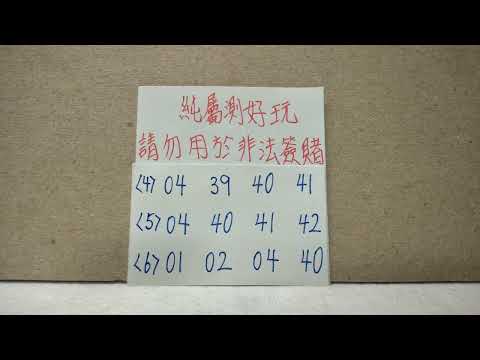 純屬測好玩
請勿用於非法簽賭
<4> 04 39 40 41
<5> 04 40 41 42
<6> 01 02 04 40